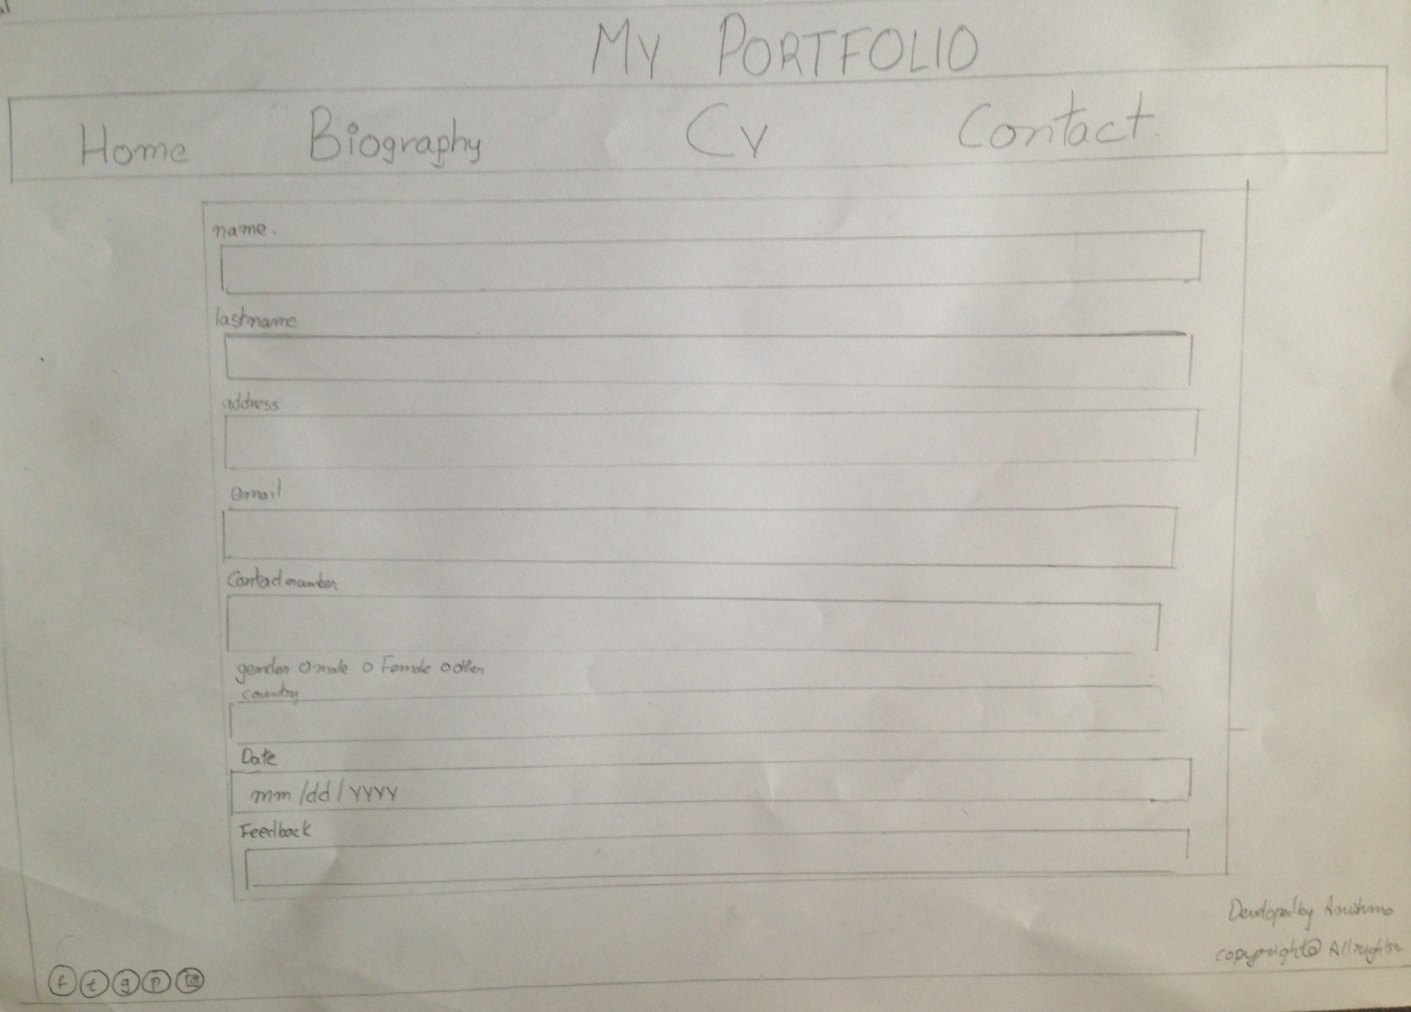 MY PORTFOLIO
Home Biography CV Contact
name.
lastname
address
email
Contact number
gender O male O Female O other
country
Date
mm/dd/yyyy
Feedback
Developed by
copyright@ All
f t g p